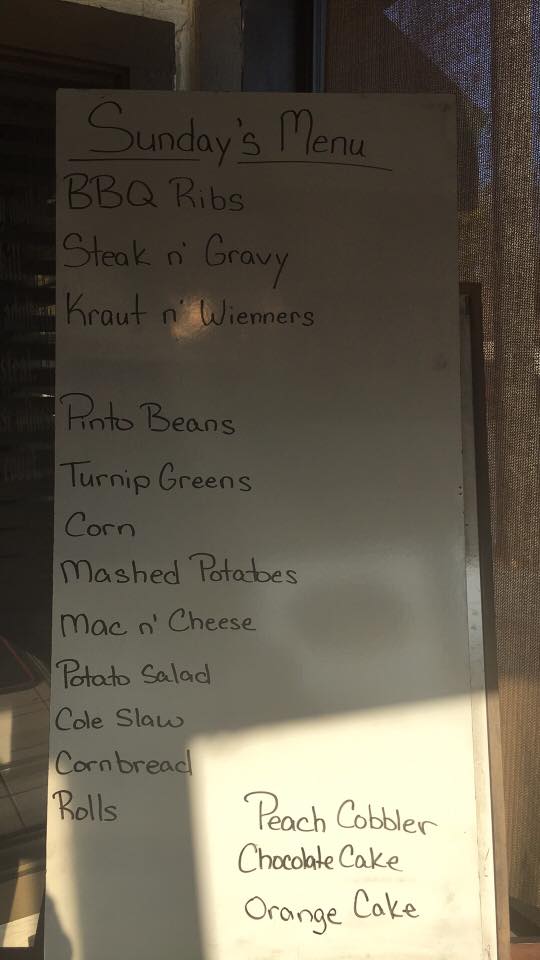 Sunday's Menu
BBQ Ribs
Steak n' Gravy
Kraut n' Wienners
Pinto Beans
Turnip Greens
Corn
Mashed Potatoes
Mac n' Cheese
Potato Salad
Cole Slaw
Cornbread
Rolls
Peach Cobbler
Chocolate Cake
Orange Cake